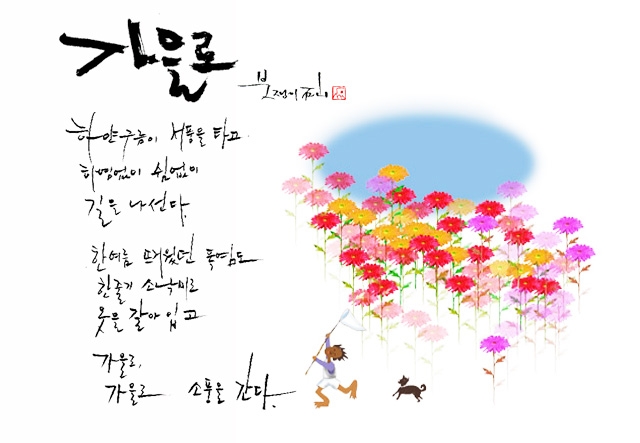 가을로
하얀구름이 서풍을 타고
하염없이 쉼없이
길을 나선다.
한여름 뜨거웠던 폭염도
한줄기 소낙비로
옷을 갈아 입고
가을로,
가을로 소풍을 간다.